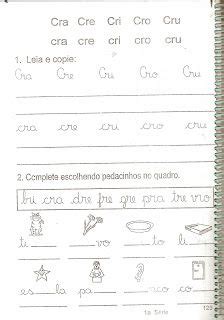 Cra Cre Cri Cro Cru
cra cre cri cro cru
1. Leia e copie:
Cra Cre Cri Cro Cru
cra cre cri cro cru
2. Complete escolhendo pedacinhos no quadro.
bu cra dre fre gre pra tre vro
ti ___ ___ vo ___ to li ___
es ___ la pa ___ ___ co co ___
1a Série